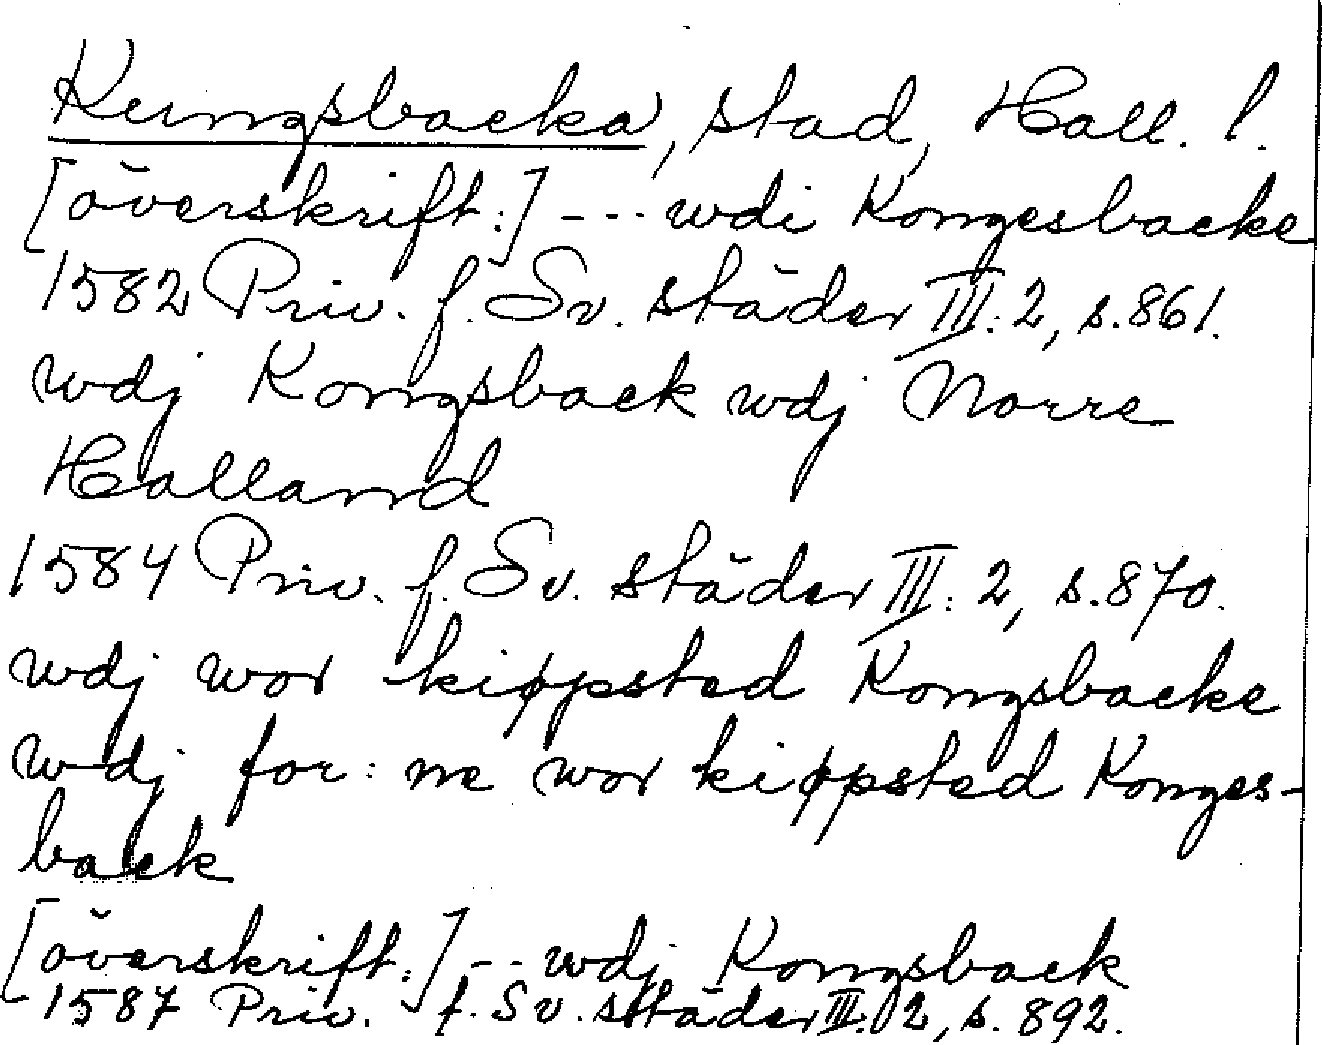 Kungsbacka, stad, Hall. l.
[överskift:] --- wdi Kongesbacke
1582 Priv. f. Sv. städer III: 2, s. 861.
wdj Kongsback wdj Norre
Halland
1584 Priv. f. Sv. städer III: 2, s. 870.
wdj wor kiøpsted Kongsbacke
wdj for: ne wor kiøpsted Konges-
back
[överskrift:] -- wdj Kongsback
1587 Priv. f. Sv. städer III: 2, s. 892.